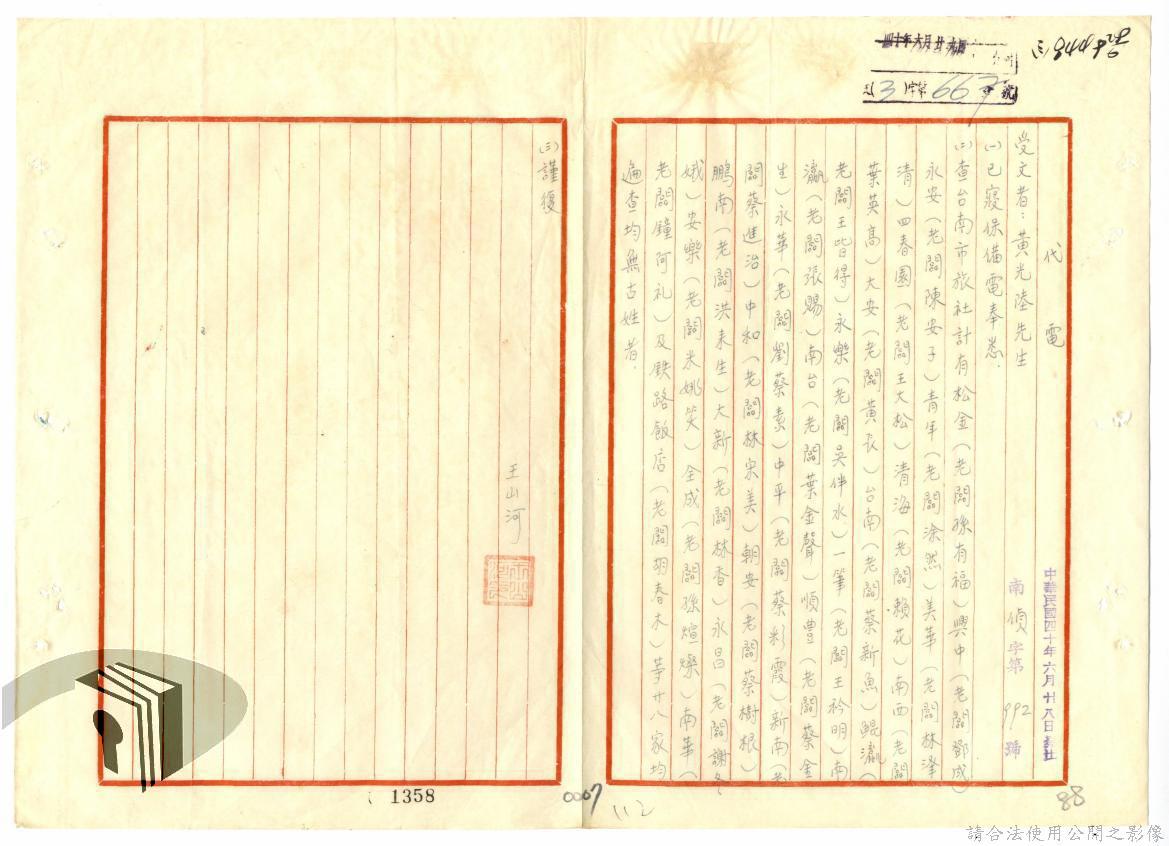 代電
中華民國四十年六月廿八日發出
南偵字第992號
受文者：黃光陸先生
㈠已寢保備電奉悉．
㈡查台南市旅社計有松金（老闆孫有福）興中（老闆鄧成）
永安（老闆陳安子）青年（老闆涂然）美華（老闆林澤
清）四春園（老闆王大松）清海（老闆賴花）南西（老闆
葉英高）大安（老闆黃衣）台南（老闆蔡新魚）鯤瀛（
老闆王皆得）永樂（老闆吳伴水）一筆（老闆王衿明）南
瀛（老闆張賜）南台（老闆葉金聲）順豊（老闆蔡金
生）永華（老闆劉蔡素）中平（老闆蔡彩霞）新南（老
闆蔡進治）中和（老闆林宗美）朝安（老闆蔡樹根）
鵬南（老闆洪来生）大新（老闆林香）永昌（老闆謝冬
娥）安樂（老闆米姚笑）全成（老闆孫煊燦）南華（
老闆鐘阿礼）及鉄路飯店（老闆胡春木）等廿八家均
遍查均無古姓者．
㈢謹復
王山河
四十年六月廿九日
(3)字第667號
1358
0007
112
88
請合法使用公開之影像